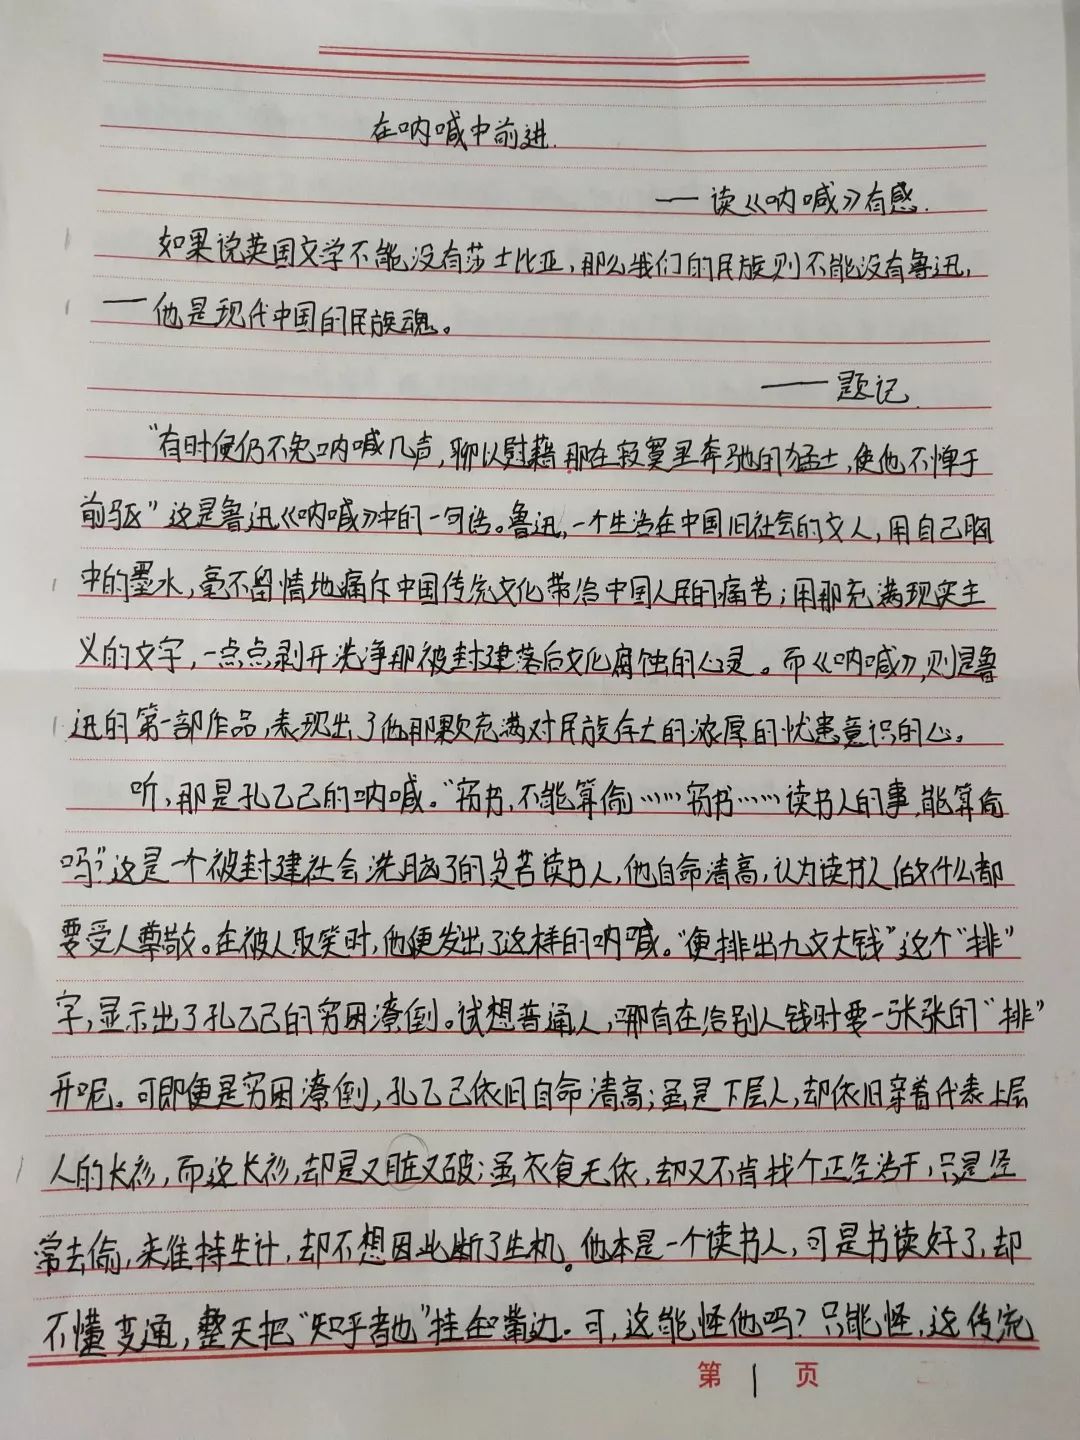 在呐喊中前进.
——读《呐喊》有感.
如果说英国文学不能没有莎士比亚,那么我们的民族则不能没有鲁迅,
——他是现代中国的民族魂。
——题记.
"有时便仍不免呐喊几声,聊以慰藉那在寂寞里奔驰的猛士,使他不惮于
前驱"这是鲁迅《呐喊》中的一句话。鲁迅,一个生活在中国旧社会的文人,用自己胸
中的墨水,毫不留情地痛斥中国传统文化带给中国人民的痛苦;用那充满现实主
义的文字,一点点剥开洗净那被封建落后文化腐蚀的心灵。而《呐喊》,则是鲁
迅的第一部作品,表现出了他那颗充满对民族存亡的浓厚的忧患意识的心。
听,那是孔乙己的呐喊。"窃书,不能算偷……窃书……读书人的事,能算偷
吗?"这是一个被封建社会洗脑了的贫苦读书人,他自命清高,认为读书人做什么都
要受人尊敬。在被人取笑时,他便发出了这样的呐喊。"便排出九文大钱"这个"排"
字,显示出了孔乙己的穷困潦倒。试想普通人,哪有在给别人钱时要一张张的"排"
开呢。可即便是穷困潦倒,孔乙己依旧自命清高;虽是下层人,却依旧穿着代表上层
人的长衫,而这长衫,却是又脏又破;虽衣食无依,却又不肯找个正经活干,只是经
常去偷,来维持生计,却不想因此断了生机。他本是一个读书人,可是书读好了,却
不懂变通,整天把"知乎者也"挂在嘴边。可,这能怪他吗?只能怪,这传统
第1页